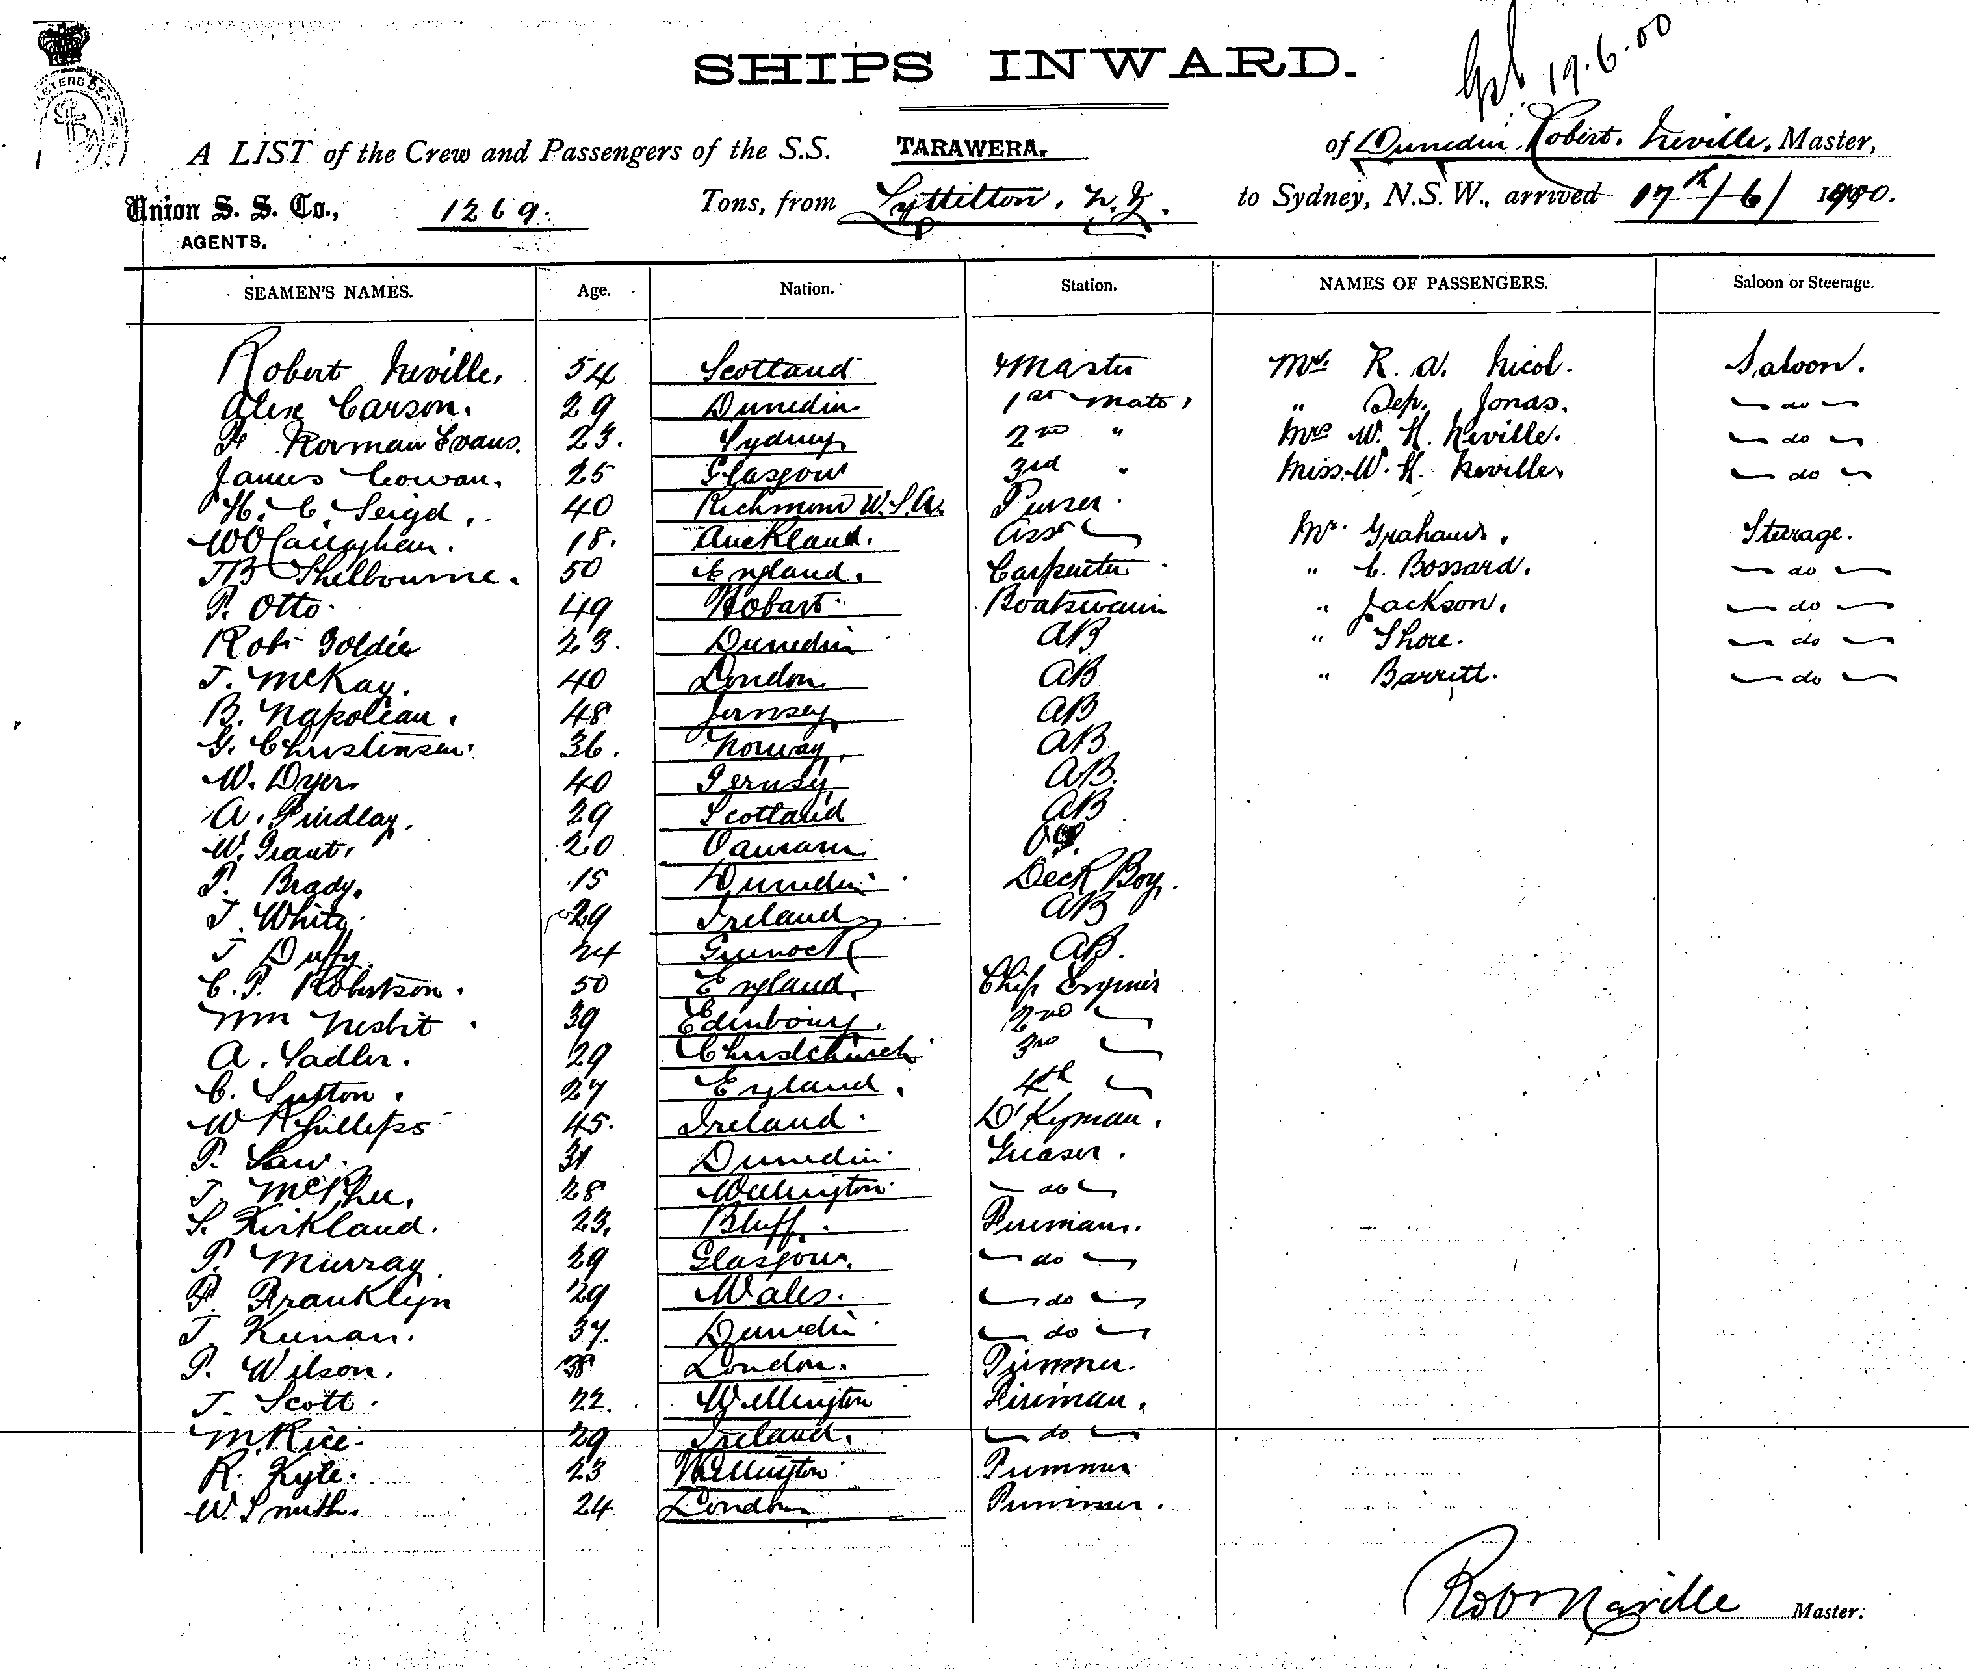 Gsb 19.6.00
SHIPS INWARD.
A LIST of the Crew and Passengers of the S.S. TARAWERA, of Dunedin. Robert. Neville, Master,
Union S. S. Co., 1269. Tons, from Lyttelton. N.Z. to Sydney, N.S.W., arrived 17th/6/1900.
AGENTS.
SEAMEN'S NAMES. Age. Nation. Station. NAMES OF PASSENGERS. Saloon or Steerage.
Robert Neville. 54 Scotland Master Mr. R. A. Nicol. Saloon.
Alex Carson. 29 Dunedin 1st Mate, " Sep. Jonas. do
F Norman Evans. 23. Sydney 2nd " Mrs W. H. Neville. do
James Cowan. 25 Glasgow 3rd " Miss. W. H. Neville do
H. C. Seigd. 40 Richmond U.S.A. Purser.
W O'Callaghan. 18. Auckland. Asst Mr. Grahams. Steerage.
J B Shelbourne. 50 England. Carpenter " C. Bossard. do
P. Otto. 49 Hobart. Boatswain " Jackson. do
Robt Goldie 23. Dunedin AB " Shore. do
J. McKay. 40 London AB " Barritt. do
B. Napolian. 48 Jersey AB
G. Christensen. 36. Norway, AB
W. Dyer. 40 Jersey AB.
A. Findlay. 29 Scotland AB
W. Grant. 20 Oamaru OS.
P. Brady. 15 Dunedin Deck Boy.
J. White. 29 Ireland AB
J Duffy 24 Greenock AB.
C. P. Robertson. 50 England. Chief Enginer
Wm Nesbit. 39 Edinbourg. 2nd
A. Sadler. 29 Christchurch 3rd
C. Sutton. 27 England. 4th
W Phillips 45. Ireland. D'Kyman.
P. Law. 31 Dunedin Greaser.
J. McPhee. 28 Wellington do
S. Kirkland. 23. Bluff. Fireman.
P. Murray 29 Glasgow. do
F. Franklyn 29 Wales. do
J. Keenan. 37. Dunedin do
P. Wilson. 38 London. Trimmer.
J. Scott. 22. Wellington Fireman.
M Rice. 29 Ireland. do
R. Kyle. 23 Wellington Trimmer
W. Smith. 24 London Trimmer.
Robt Neville Master.